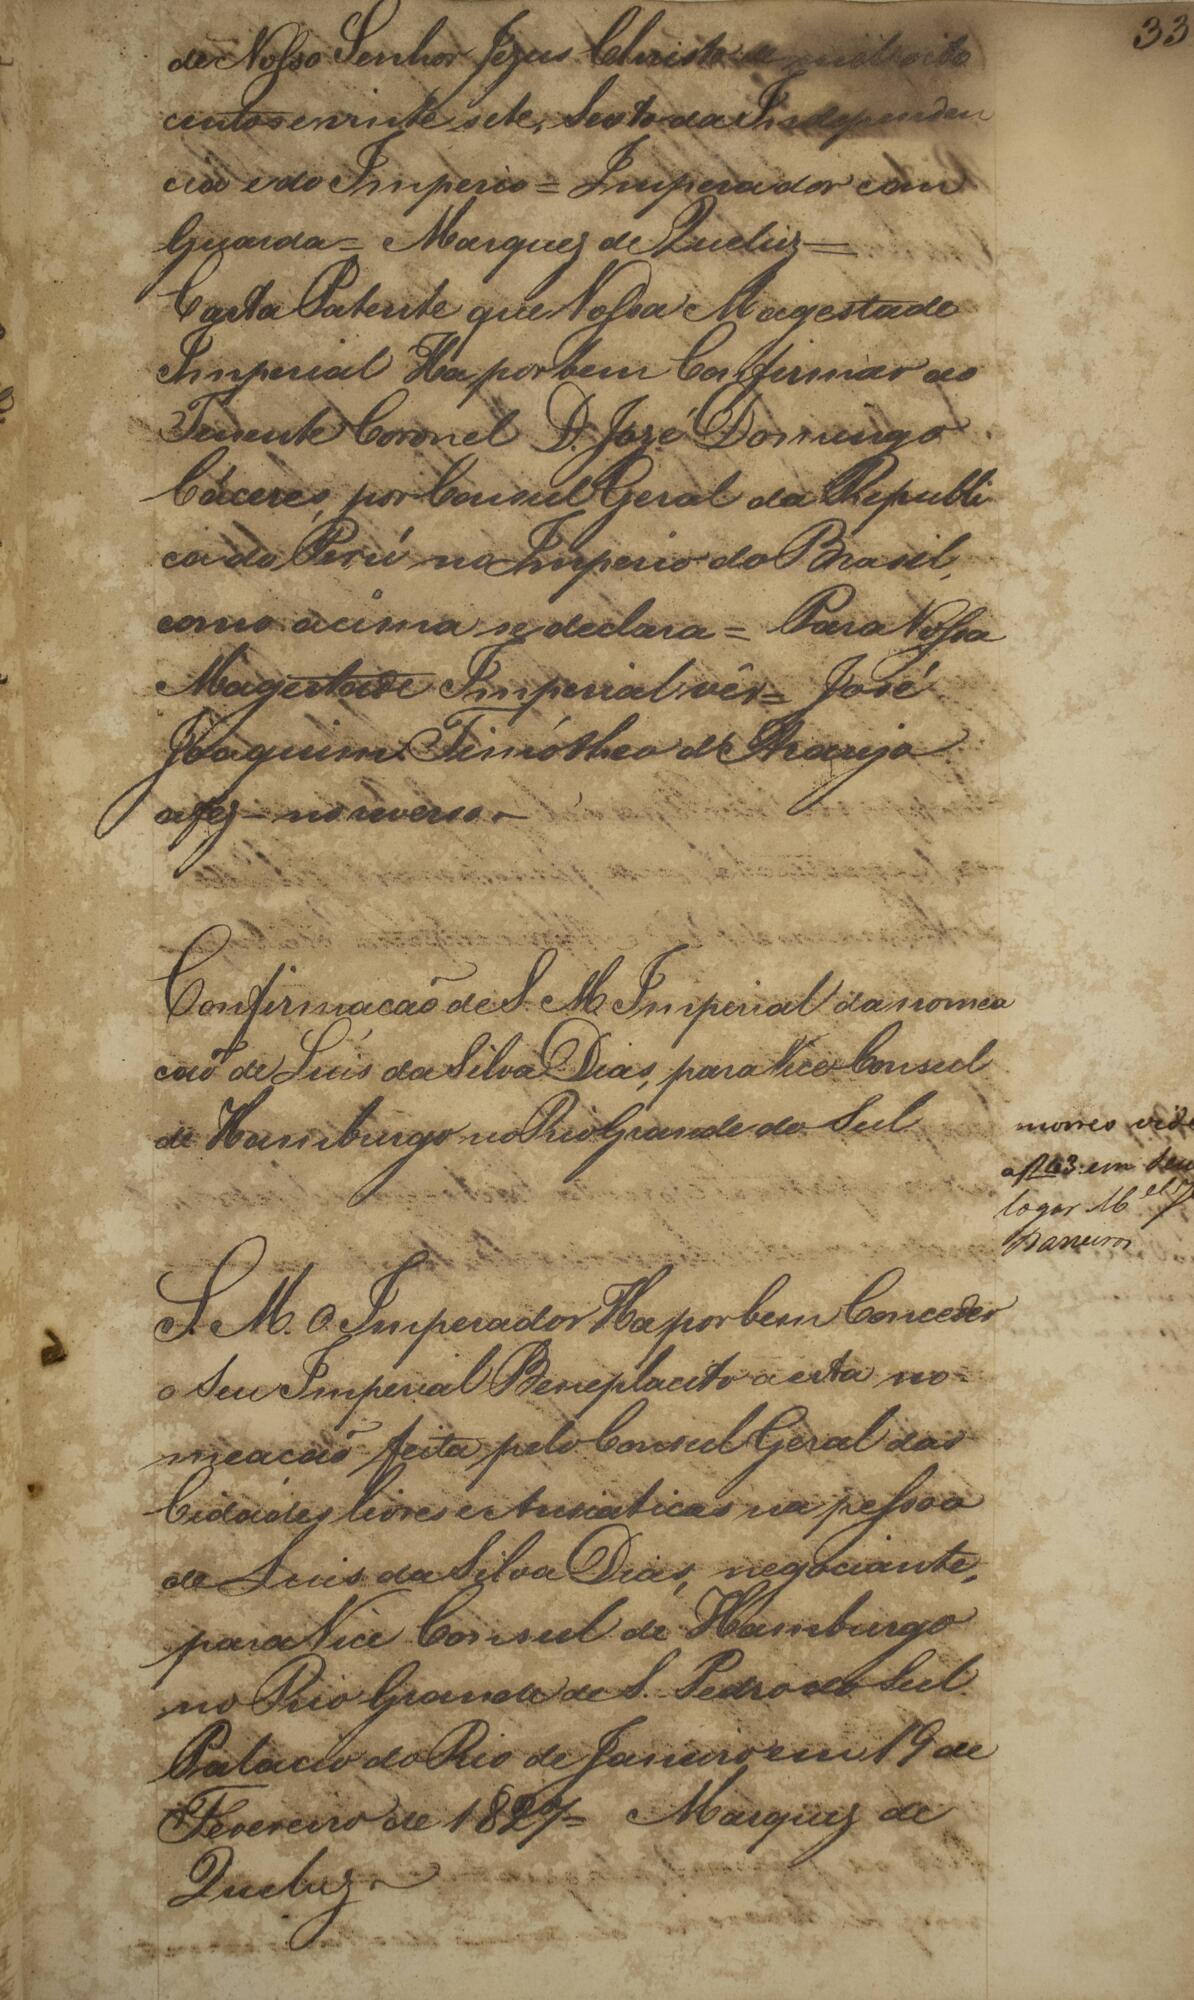 33
de Nosso Senhor Jezus Christo de mil oito
centos e vinte sete, Sexto da Independen
cia e do Imperio = Imperador com
Guarda = Marquez de Queluz =
Carta Patente que Vossa Magestade
Imperial Ha por bem Confirmar ao
Tenente Coronel D. José Domingo
Cáceres, por Consul Geral da Republi
ca do Perú no Imperio do Brasil,
como acima se declara = Para Vossa
Magestade Imperial vêr = José
Joaquim Timótheo de Araujo
a fez = no reverso.
Confirmacaõ de S. M. Imperial da nomea
caõ de Luis da Silva Dias, para Vice Consul
de Hamburgo no Rio Grande do Sul
morreo vide
a f 63 em seu
logar M.el
Barreiros
S. M. O Imperador Ha por bem Conceder
o Seu Imperial Beneplacito a esta no-
meacaõ feita pelo Consul Geral das
Cidades livres e Anseaticas na pessoa
de Luis da Silva Dias, negociante,
para Vice Consul de Hamburgo
no Rio Grande de S. Pedro do Sul
Palacio do Rio de Janeiro em 19 de
Fevereiro de 1827 = Marquez de
Queluz.